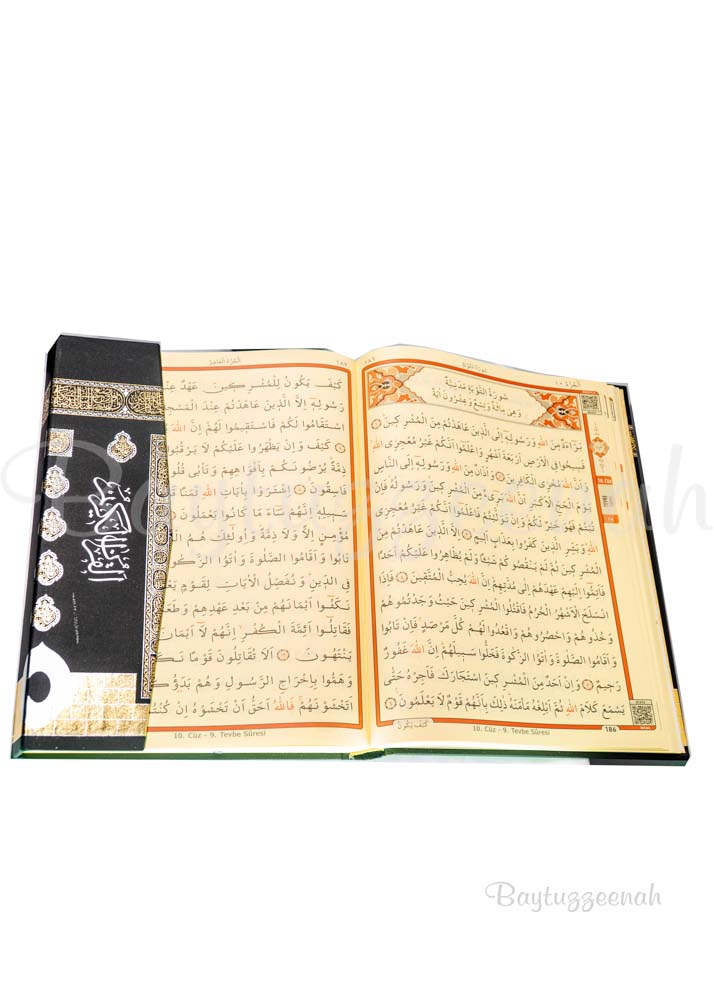 الجزء ١٠
سورة التوبة
١٨٦
سُورَةُ التَّوْبَةِ مَدَنِيَّةٌ
وَهِيَ مِائَةٌ وَتِسْعٌ وَعِشْرُونَ اٰيَةً
بَرَٓاءَةٌ مِنَ اللّٰهِ وَرَسُولِه۪ٓ اِلَى الَّذ۪ينَ عَاهَدْتُمْ مِنَ الْمُشْرِك۪ينَ ﴿١﴾
فَس۪يحُوا فِي الْاَرْضِ اَرْبَعَةَ اَشْهُرٍ وَاعْلَمُٓوا اَنَّكُمْ غَيْرُ مُعْجِزِي اللّٰهِ
وَاَنَّ اللّٰهَ مُخْزِي الْكَافِر۪ينَ ﴿٢﴾ وَاَذَانٌ مِنَ اللّٰهِ وَرَسُولِه۪ٓ اِلَى النَّاسِ
يَوْمَ الْحَجِّ الْاَكْبَرِ اَنَّ اللّٰهَ بَر۪ٓيءٌ مِنَ الْمُشْرِك۪ينَ وَرَسُولُهُ فَاِنْ
تُبْتُمْ فَهُوَ خَيْرٌ لَكُمْ وَاِنْ تَوَلَّيْتُمْ فَاعْلَمُٓوا اَنَّكُمْ غَيْرُ مُعْجِزِي
اللّٰهِ وَبَشِّرِ الَّذ۪ينَ كَفَرُوا بِعَذَابٍ اَل۪يمٍ ﴿٣﴾ اِلَّا الَّذ۪ينَ عَاهَدْتُمْ مِنَ
الْمُشْرِك۪ينَ ثُمَّ لَمْ يَنْقُصُوكُمْ شَيْـًٔا وَلَمْ يُظَاهِرُوا عَلَيْكُمْ اَحَدًا
فَاَتِمُّٓوا اِلَيْهِمْ عَهْدَهُمْ اِلٰى مُدَّتِهِمْ اِنَّ اللّٰهَ يُحِبُّ الْمُتَّق۪ينَ ﴿٤﴾ فَاِذَا
انْسَلَخَ الْاَشْهُرُ الْحُرُمُ فَاقْتُلُوا الْمُشْرِك۪ينَ حَيْثُ وَجَدْتُمُوهُمْ
وَخُذُوهُمْ وَاحْصُرُوهُمْ وَاقْعُدُوا لَهُمْ كُلَّ مَرْصَدٍ فَاِنْ تَابُوا
وَاَقَامُوا الصَّلٰوةَ وَاٰتَوُا الزَّكٰوةَ فَخَلُّوا سَب۪يلَهُمْ اِنَّ اللّٰهَ غَفُورٌ
رَح۪يمٌ ﴿٥﴾ وَاِنْ اَحَدٌ مِنَ الْمُشْرِك۪ينَ اسْتَجَارَكَ فَاَجِرْهُ حَتّٰى
يَسْمَعَ كَلَامَ اللّٰهِ ثُمَّ اَبْلِغْهُ مَأْمَنَهُ ذٰلِكَ بِاَنَّهُمْ قَوْمٌ لَا يَعْلَمُونَ ﴿٦﴾
كَيْفَ يَكُونُ
10. Cüz - 9. Tevbe Sûresi
186
10. Cüz
الجزء العاشر
١٨٧
كَيْفَ يَكُونُ لِلْمُشْرِك۪ينَ عَهْدٌ عِنْدَ
رَسُولِه۪ٓ اِلَّا الَّذ۪ينَ عَاهَدْتُمْ عِنْدَ الْمَسْجِدِ
اسْتَقَامُوا لَكُمْ فَاسْتَق۪يمُوا لَهُمْ اِنَّ اللّٰهَ
كَيْفَ وَاِنْ يَظْهَرُوا عَلَيْكُمْ لَا يَرْقُبُوا
ذِمَّةً يُرْضُونَكُمْ بِاَفْوَاهِهِمْ وَتَأْبٰى قُلُو
فَاسِقُونَ ﴿٨﴾ اِشْتَرَوْا بِاٰيَاتِ اللّٰهِ ثَمَنًا
سَب۪يلِه۪ اِنَّهُمْ سَٓاءَ مَا كَانُوا يَعْمَلُونَ ﴿٩﴾
مُؤْمِنٍ اِلًّا وَلَا ذِمَّةً وَاُو۬لٰٓئِكَ هُمُ الْ
تَابُوا وَاَقَامُوا الصَّلٰوةَ وَاٰتَوُا الزَّكٰو
فِي الدّ۪ينِ وَنُفَصِّلُ الْاٰيَاتِ لِقَوْمٍ يَعْ
نَكَثُٓوا اَيْمَانَهُمْ مِنْ بَعْدِ عَهْدِهِمْ وَطَعَنُ
فَقَاتِلُٓوا اَئِمَّةَ الْكُفْرِ اِنَّهُمْ لَٓا اَيْمَانَ
يَنْتَهُونَ ﴿١٢﴾ اَلَا تُقَاتِلُونَ قَوْمًا نَكَ
وَهَمُّوا بِاِخْرَاجِ الرَّسُولِ وَهُمْ بَدَؤُ۫كُ
اَتَخْشَوْنَهُمْ فَاللّٰهُ اَحَقُّ اَنْ تَخْشَوْهُ اِنْ كُنْتُ
10. Cüz - 9. Tevbe Sûresi
القرآن الكريم
Baytuzzeenah
Baytuzzeenah